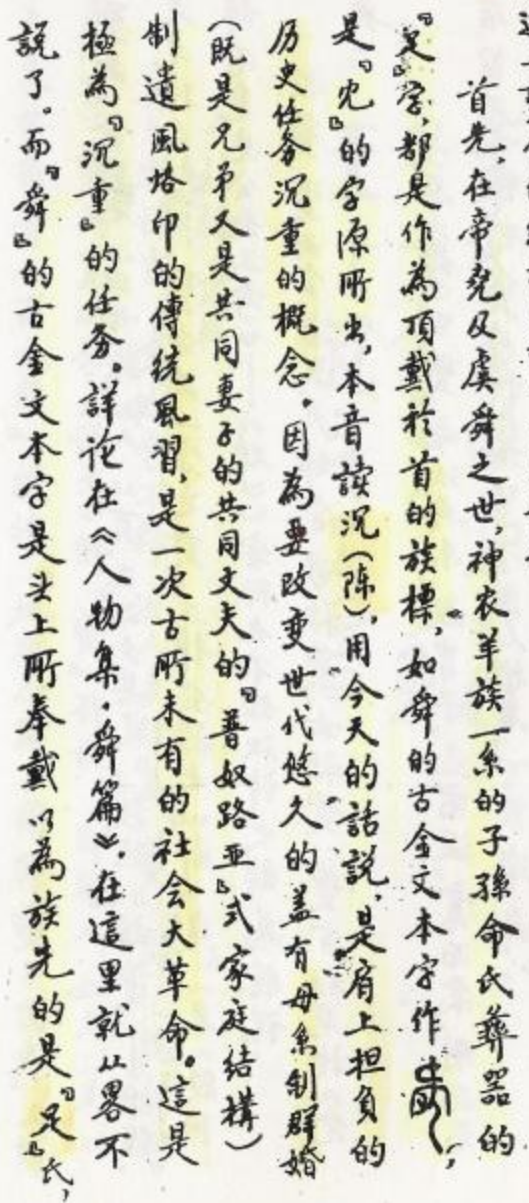 首先，在帝堯及虞舜之世，神农羊族一系的子孫命氏彝器的
『足』字，都是作為頂戴於首的族標，如舜的古金文本字作，
是『冘』的字源所出，本音讀沉（陈），用今天的話說，是肩上担负的
历史任务沉重的概念。因為要改变世代悠久的盖有母系制群婚
（既是兄弟又是共同妻子的共同丈夫的『普奴路亚』式家庭结構）
制遺風烙印的傳統風習，是一次古所未有的社会大革命。這是
極為『沉重』的任务。詳论在《人物集·舜篇》，在這里就从畧不
説了。而『舜』的古金文本字是头上所奉戴以為族先的是『足』氏，